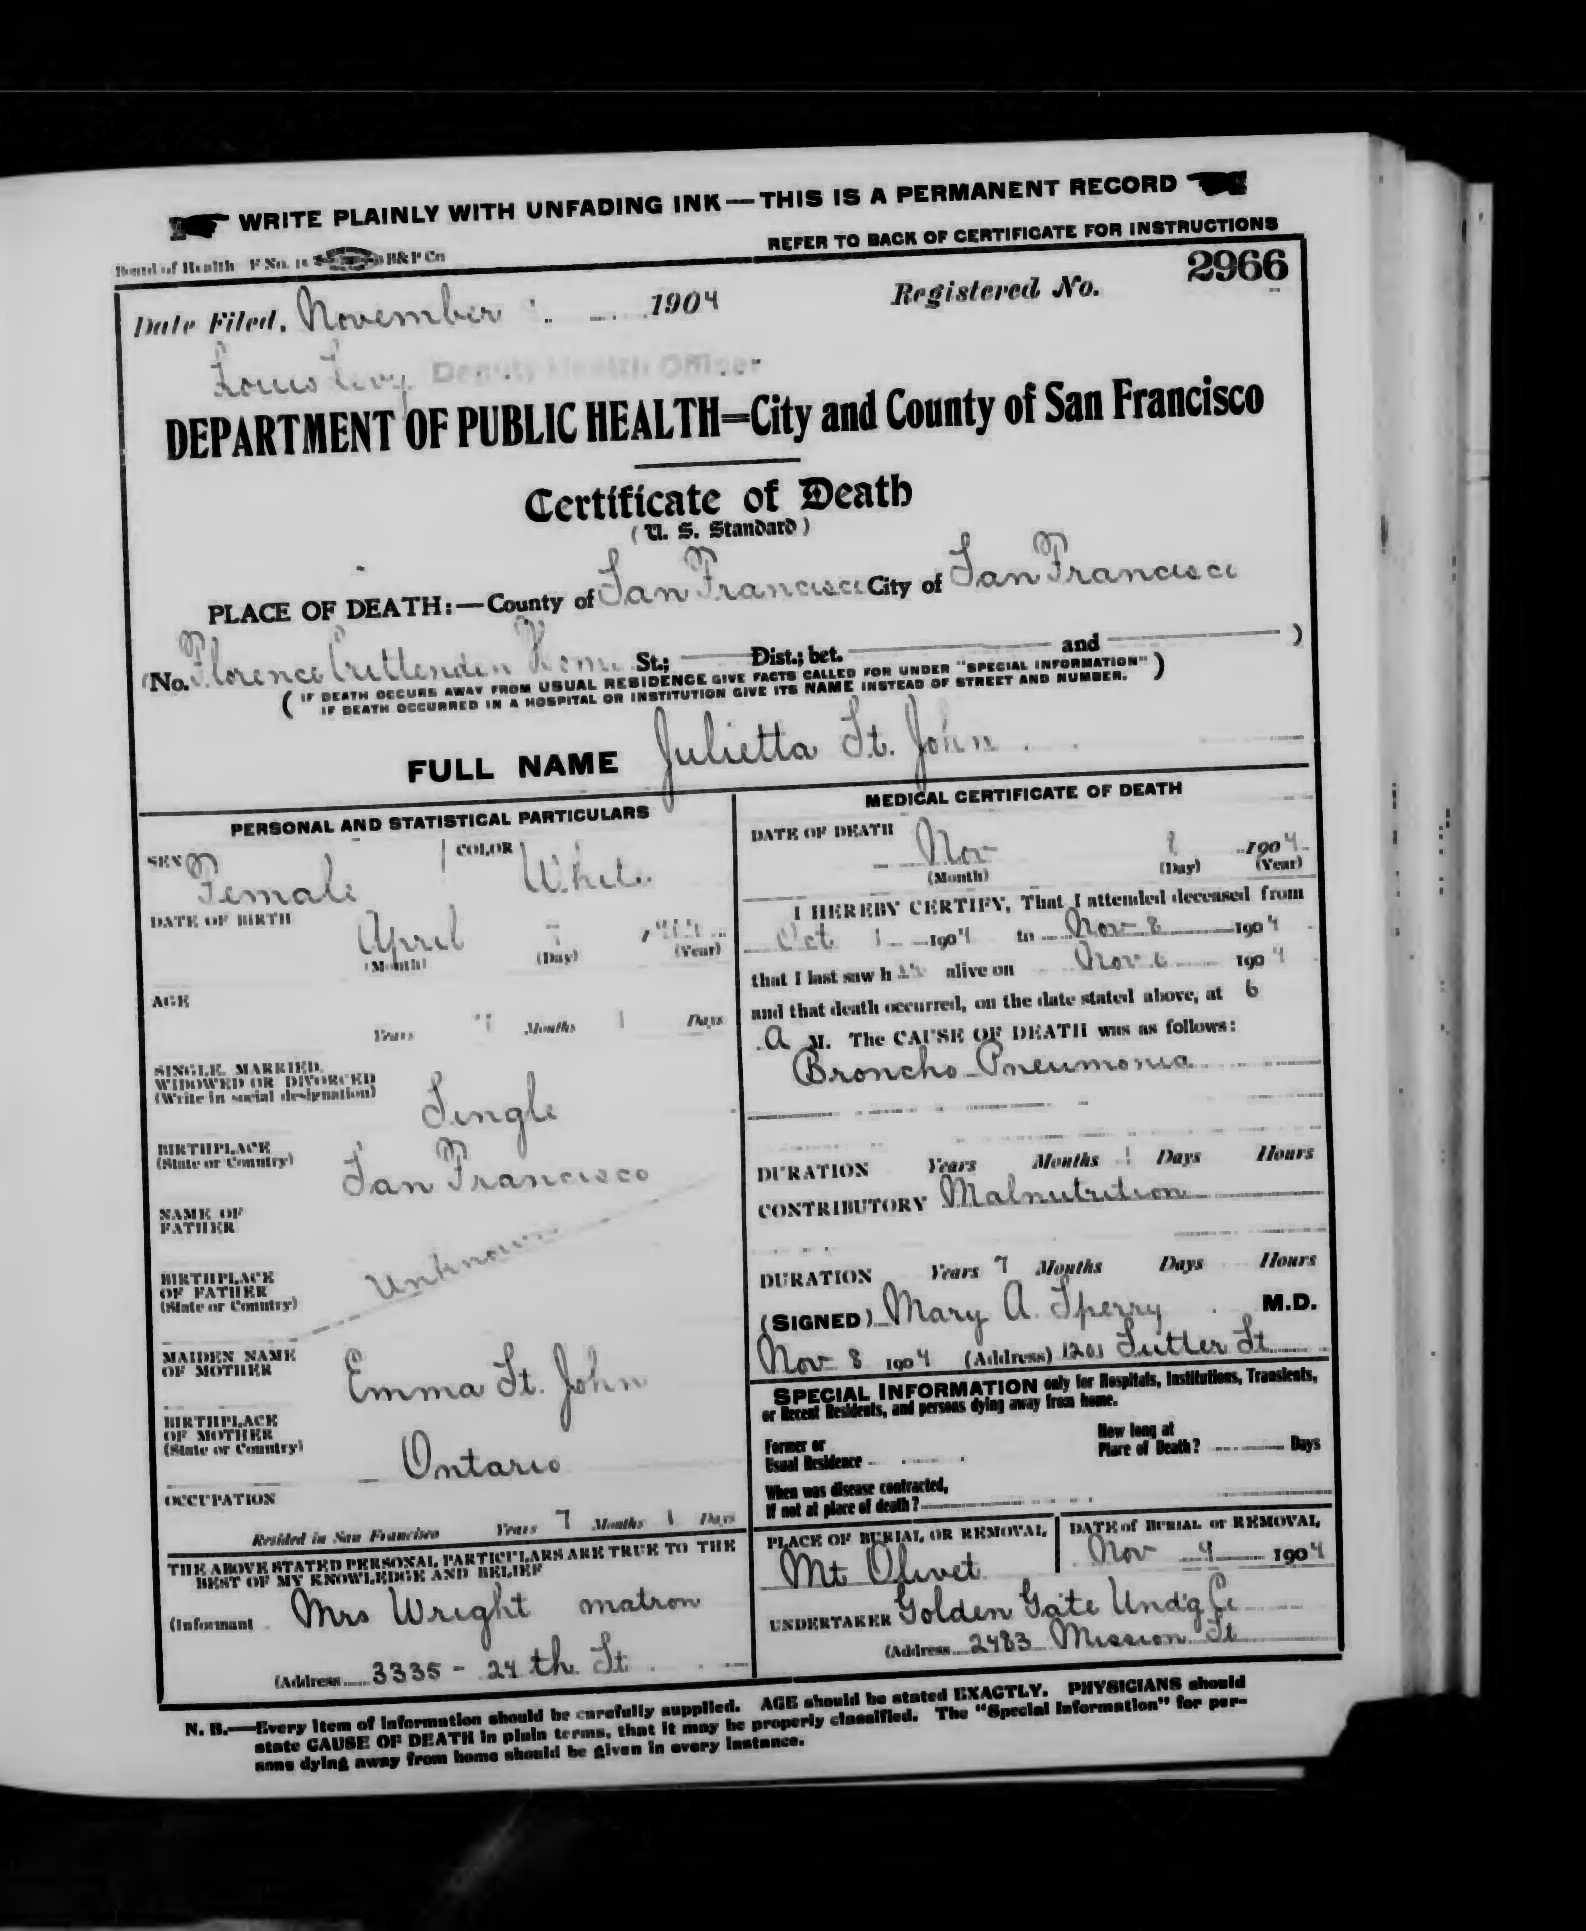 WRITE PLAINLY WITH UNFADING INK — THIS IS A PERMANENT RECORD
REFER TO BACK OF CERTIFICATE FOR INSTRUCTIONS
Board of Health F No. B&P Co
Date Filed, November 1904 Registered No. 2966
Louis Levy Deputy Health Officer
DEPARTMENT OF PUBLIC HEALTH=City and County of San Francisco
Certificate of Death
( U. S. Standard )
PLACE OF DEATH:—County of San Francisco City of San Francisco
(No. Florence Crittenden Home St.; Dist.; bet. and )
( IF DEATH OCCURS AWAY FROM USUAL RESIDENCE GIVE FACTS CALLED FOR UNDER "SPECIAL INFORMATION" )
IF DEATH OCCURRED IN A HOSPITAL OR INSTITUTION GIVE ITS NAME INSTEAD OF STREET AND NUMBER.
FULL NAME Julietta St. John
PERSONAL AND STATISTICAL PARTICULARS
SEX Female COLOR White
DATE OF BIRTH April
(Month) (Day) (Year)
AGE
Years 7 Months 1 Days
SINGLE, MARRIED,
WIDOWED OR DIVORCED
(Write in social designation) Single
BIRTHPLACE
(State or Country) San Francisco
NAME OF
FATHER
Unknown
BIRTHPLACE
OF FATHER
(State or Country)
MAIDEN NAME
OF MOTHER Emma St. John
BIRTHPLACE
OF MOTHER
(State or Country) Ontario
OCCUPATION
Resided in San Francisco Years 7 Months 1 Days
THE ABOVE STATED PERSONAL PARTICULARS ARE TRUE TO THE
BEST OF MY KNOWLEDGE AND BELIEF
(Informant Mrs Wright matron
(Address 3335 - 24th St
MEDICAL CERTIFICATE OF DEATH
DATE OF DEATH Nov 8 1904
(Month) (Day) (Year)
I HEREBY CERTIFY, That I attended deceased from
Oct 1 1904 to Nov 8 1904
that I last saw h alive on Nov 6 1904
and that death occurred, on the date stated above, at 6
A M. The CAUSE OF DEATH was as follows:
Broncho-Pneumonia
DURATION Years Months Days Hours
CONTRIBUTORY Malnutrition
DURATION Years 7 Months Days Hours
(SIGNED) Mary A. Sperry M.D.
Nov 8 1904 (Address) 1201 Sutter St
SPECIAL INFORMATION only for Hospitals, Institutions, Transients,
or Recent Residents, and persons dying away from home.
Former or
Usual Residence
How long at
Place of Death? Days
When was disease contracted,
If not at place of death?
PLACE OF BURIAL OR REMOVAL
Mt Olivet
DATE of BURIAL or REMOVAL
Nov 9 1904
UNDERTAKER Golden Gate Und'g Co
(Address 2483 Mission St
N. B.—Every item of information should be carefully supplied. AGE should be stated EXACTLY. PHYSICIANS should
state CAUSE OF DEATH in plain terms, that it may be properly classified. The "Special Information" for per-
sons dying away from home should be given in every instance.